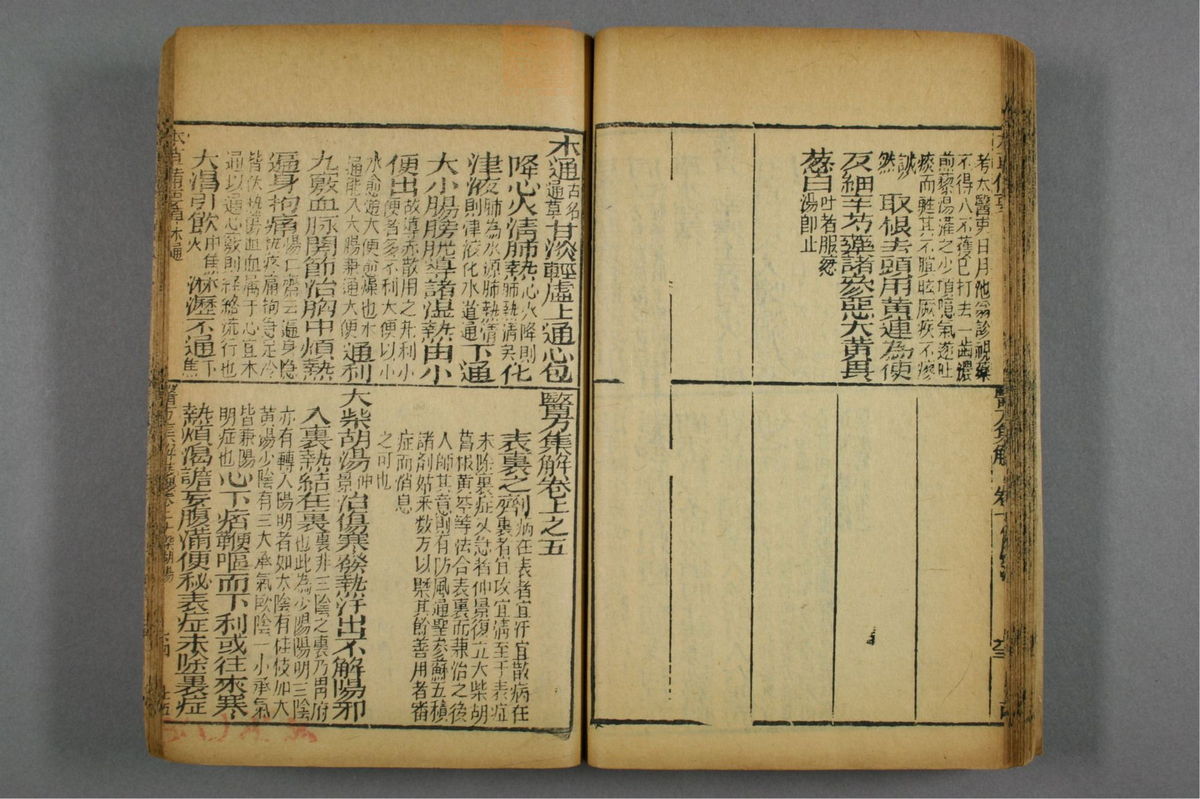 考太醫吏目月池翁診視藥
不得入不獲已打去一齒濃
煎藜湯灌之少頃噫氣遂吐
痰而甦其不瞑眩厥疾不瘳
誠然 取根去頭用黃連為使
反細辛芍藥諸參惡大黃畏
蔥白 吐者服蔥湯即止
木通 古名通草 甘淡輕虛上通心包
降心火清肺熱 心火降則肺熱清矣 化
津液 肺為水源肺熱清則津液化水道通 下通
大小腸膀胱導諸濕熱由小
便出 故導赤散用之凡利小便者多不利大便以小
水愈通大便愈燥也木通能入大腸兼通大便 通利
九竅血脉關節治胸中煩熱
遍身拘痛 楊仁齋云遍身隱熱疼痛拘急足冷
皆伏熱傷血血屬于心宜木通以通心竅則經絡流行也
大渴引飲 中焦火 淋瀝不通 下焦
醫方集解卷上之五
表裏之劑 病在表者宜汗宜散病在
裏者宜攻宜清至于表症
未除裏症又急者仲景復立大柴胡
葛根黃芩等法合表裏而兼治之後
人師其意則有防風通聖參蘇五積
諸劑姑采數方以槩其餘善用者審
症而消息
之可也
大柴胡湯 仲景 治傷寒發熱汗出不解陽邪
入裏熱結在裏 裏非三陰之裏乃胃府
也此為少陽陽明三陰
亦有轉入陽明者如太陰有桂枝加大
黃湯少陰有三大承氣歐陰一小承氣
皆兼陽
明症也 心下痞鞕嘔而下利或往來寒
熱煩渴譫妄腹滿便秘表症未除裏症